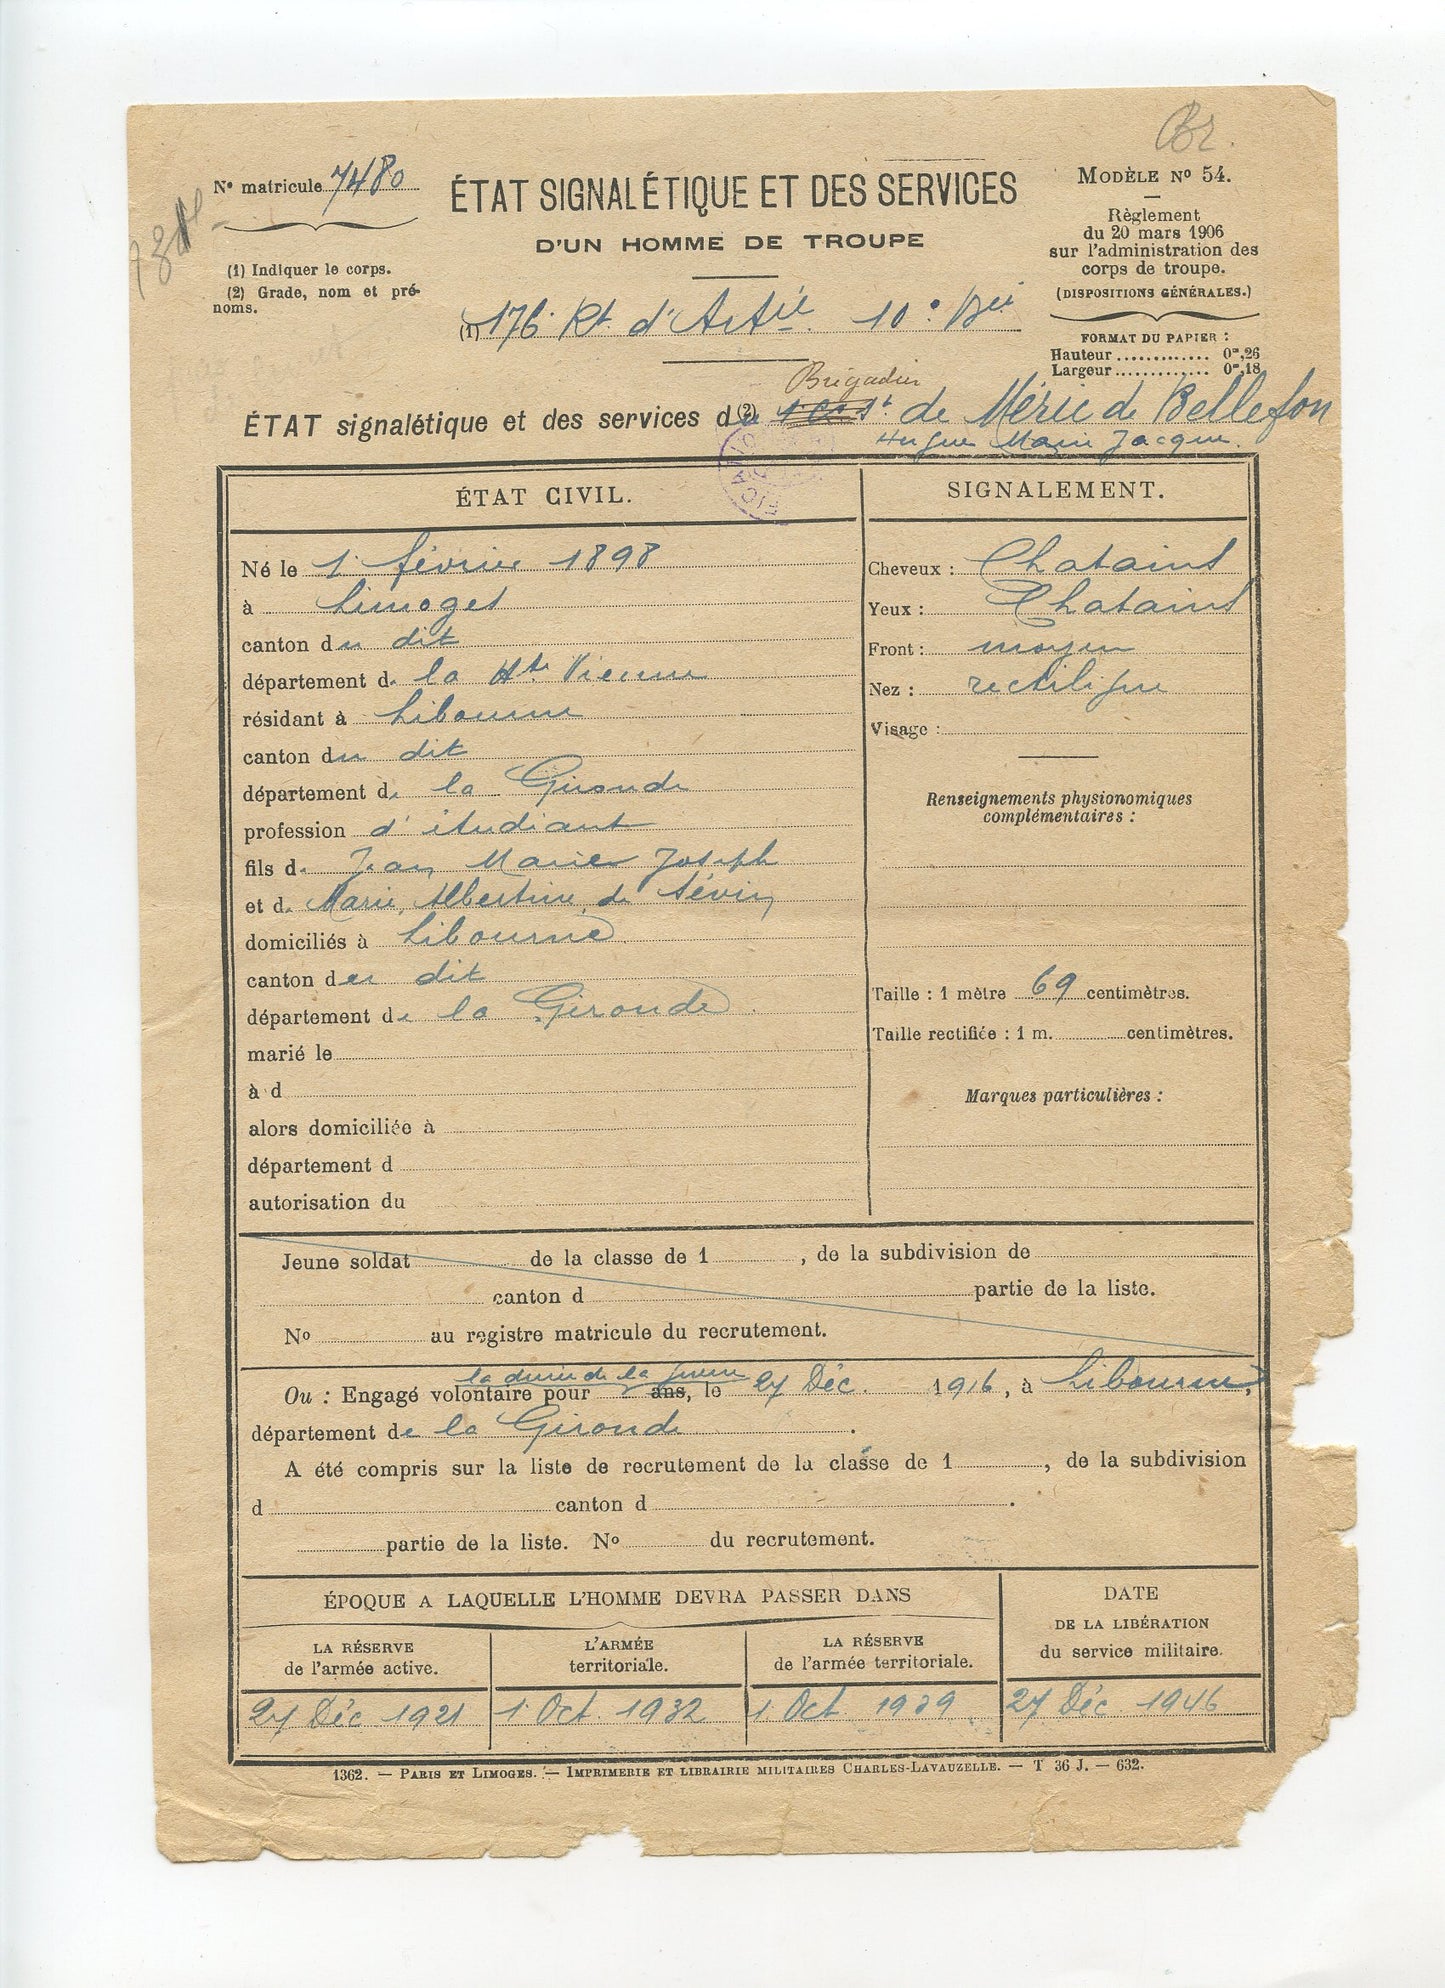 Br.
N° matricule 7480
ÉTAT SIGNALÉTIQUE ET DES SERVICES
D'UN HOMME DE TROUPE
MODÈLE N° 54.
Règlement
du 20 mars 1906
sur l'administration des
corps de troupe.
(DISPOSITIONS GÉNÉRALES.)
FORMAT DU PAPIER :
Hauteur ............. 0m,26
Largeur ............. 0m,18
(1) Indiquer le corps.
(2) Grade, nom et prénoms.
(1) 176° Rt. d'Artie 10° Bie
Brigadier
ÉTAT signalétique et des services du (2) de Méric de Bellefon
Hugue Marie Jacque.
ÉTAT CIVIL.
Né le 1 février 1898
à Limoges
canton du dit
département de la Hte Vienne
résidant à Libourne
canton du dit
département de la Gironde
profession d'étudiant
fils de Jean Marie Joseph
et de Marie, Albertine de Sévin
domiciliés à Libourne
canton du dit
département de la Gironde
marié le
à d
alors domiciliée à
département d
autorisation du
SIGNALEMENT.
Cheveux : Chatains
Yeux : Chatains
Front : moyen
Nez : rectiligne
Visage :
Renseignements physionomiques
complémentaires :
Taille : 1 mètre 69 centimètres.
Taille rectifiée : 1 m. centimètres.
Marques particulières :
Jeune soldat de la classe de 1 , de la subdivision de
canton d partie de la liste.
N° au registre matricule du recrutement.
la durée de la guerre
Ou : Engagé volontaire pour ans, le 27 Déc. 1916, à Libourne,
département de la Gironde.
A été compris sur la liste de recrutement de la classe de 1 , de la subdivision
d canton d .
partie de la liste. N° du recrutement.
ÉPOQUE A LAQUELLE L'HOMME DEVRA PASSER DANS
LA RÉSERVE
de l'armée active.
L'ARMÉE
territoriale.
LA RÉSERVE
de l'armée territoriale.
DATE
DE LA LIBÉRATION
du service militaire.
27 Déc 1921
1 Oct. 1932
1 Oct. 1939
27 Déc. 1946
1362. — PARIS ET LIMOGES. — IMPRIMERIE ET LIBRAIRIE MILITAIRES CHARLES-LAVAUZELLE. — T 36 J. — 632.